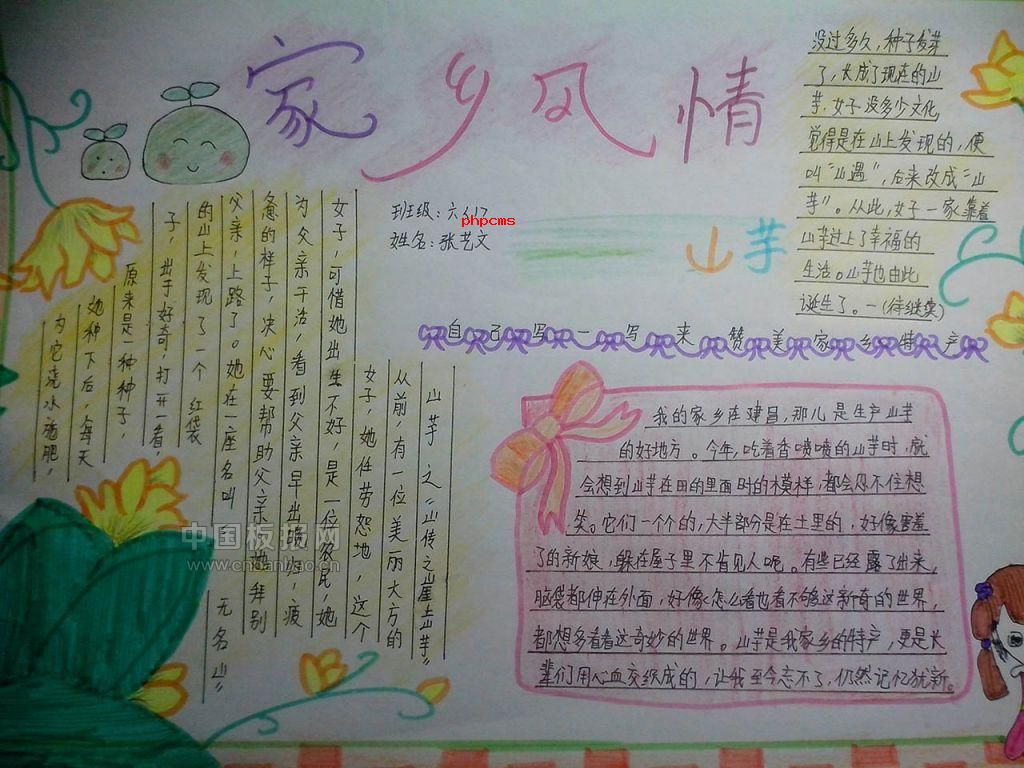 家乡风情
班级:六(1)
phpcms
姓名:张艺文
山芋
山芋之《山传之山崖上山芋》
从前,有一位美丽大方的
女子,她任劳怨地,这个
女子,可惜她出生不好,是一位农民,她
为父亲干活,看到父亲早出晚归,疲
惫的样子,决心要帮助父亲,她拜别
父亲,上路了。她在一座名叫 无名山”
的山上发现了一个 红袋
子,出于好奇,打开一看,
原来是一种种子,
她种下后,每天
为它浇水施肥,
没过多久,种子发芽
了,长成了现在的山
芋,女子没多少文化
觉得是在山上发现的,便
叫“山遇”,后来改成“山
芋”。从此,女子一家靠着
山芋过上了幸福的
生活。山芋也由此
诞生了。—(待继续)
自己写一写来赞美家乡特产
我的家乡在建昌,那儿是生产山芋
的好地方。今年,吃着香喷喷的山芋时,就
会想到山芋在田的里面时的模样,都会忍不住想
笑。它们一个个的,大半部分是在土里的,好像害羞
了的新娘,躲在屋子里不肯见人呢。有些已经露了出来,
脑袋都伸在外面,好像怎么看也看不够这新奇的世界,
都想多看看这奇妙的世界。山芋是我家乡的特产,更是长
辈们用心血交织成的,让我至今忘不了,仍然记忆犹新。
中国板报网
www.cnbanbao.cn